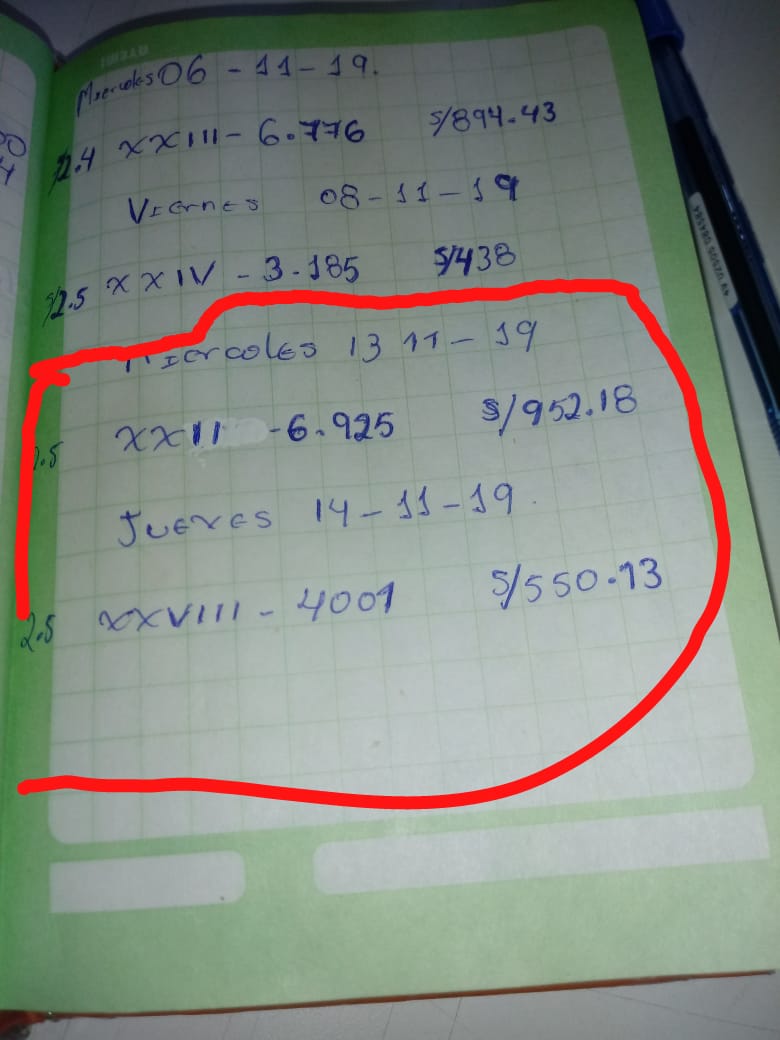 Miercoles 06 - 11 - 19.
S/2.4 XXIII - 6.776 S/894.43
Viernes 08 - 11 - 19
S/2.5 XXIV - 3.185 S/438
Miercoles 13 11 - 19
2.5 XXII - 6.925 S/952.18
Jueves 14 - 11 - 19.
2.5 XXVIII - 4001 S/550.13